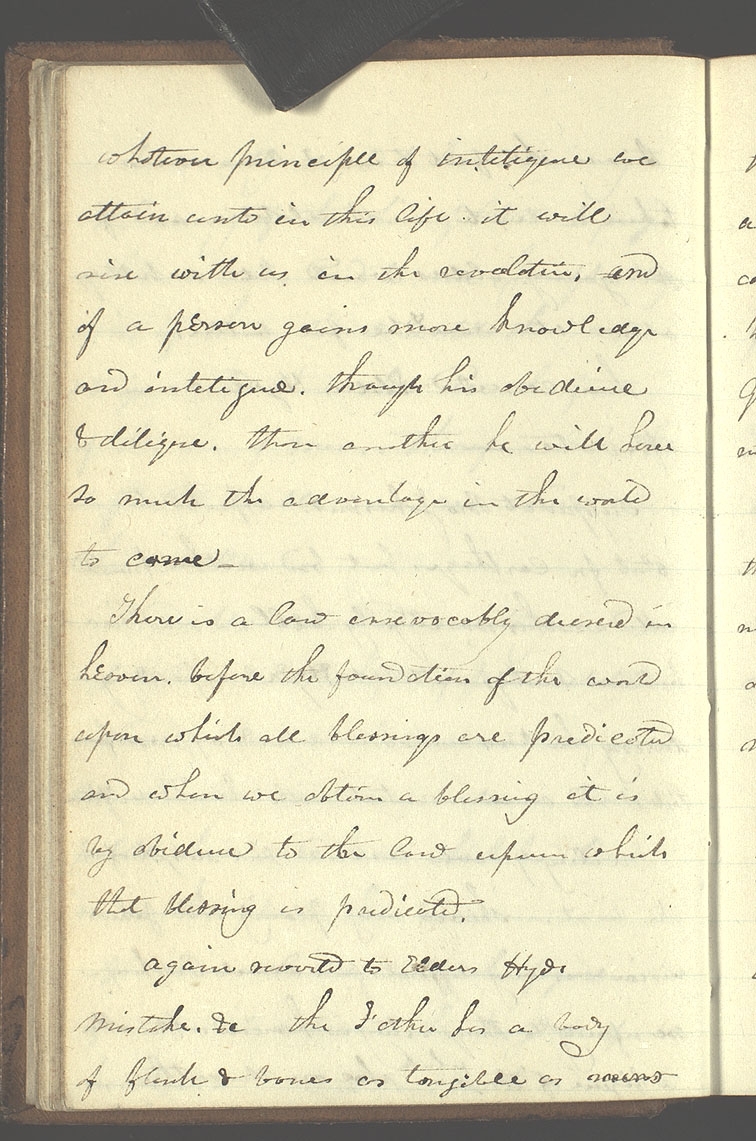 whatever principle of inteligence we
attain unto in this life. it will
rise with us in the revalatin, and
if a person gains more knowledge
and inteligence. through his obedience
& diligence. than another he will have
so much the advantage in the world
to come—
There is a law irrevocably decreed in
heaven. before the foundation of the world
upon which all blessings are predicated
and when we obtain a blessing it is
by obidience to the law upon which
that blessing is predicated.
again revertd to Elders Hyde
mistake. &c the Father has a body
of flesh & bones as tangible as mans